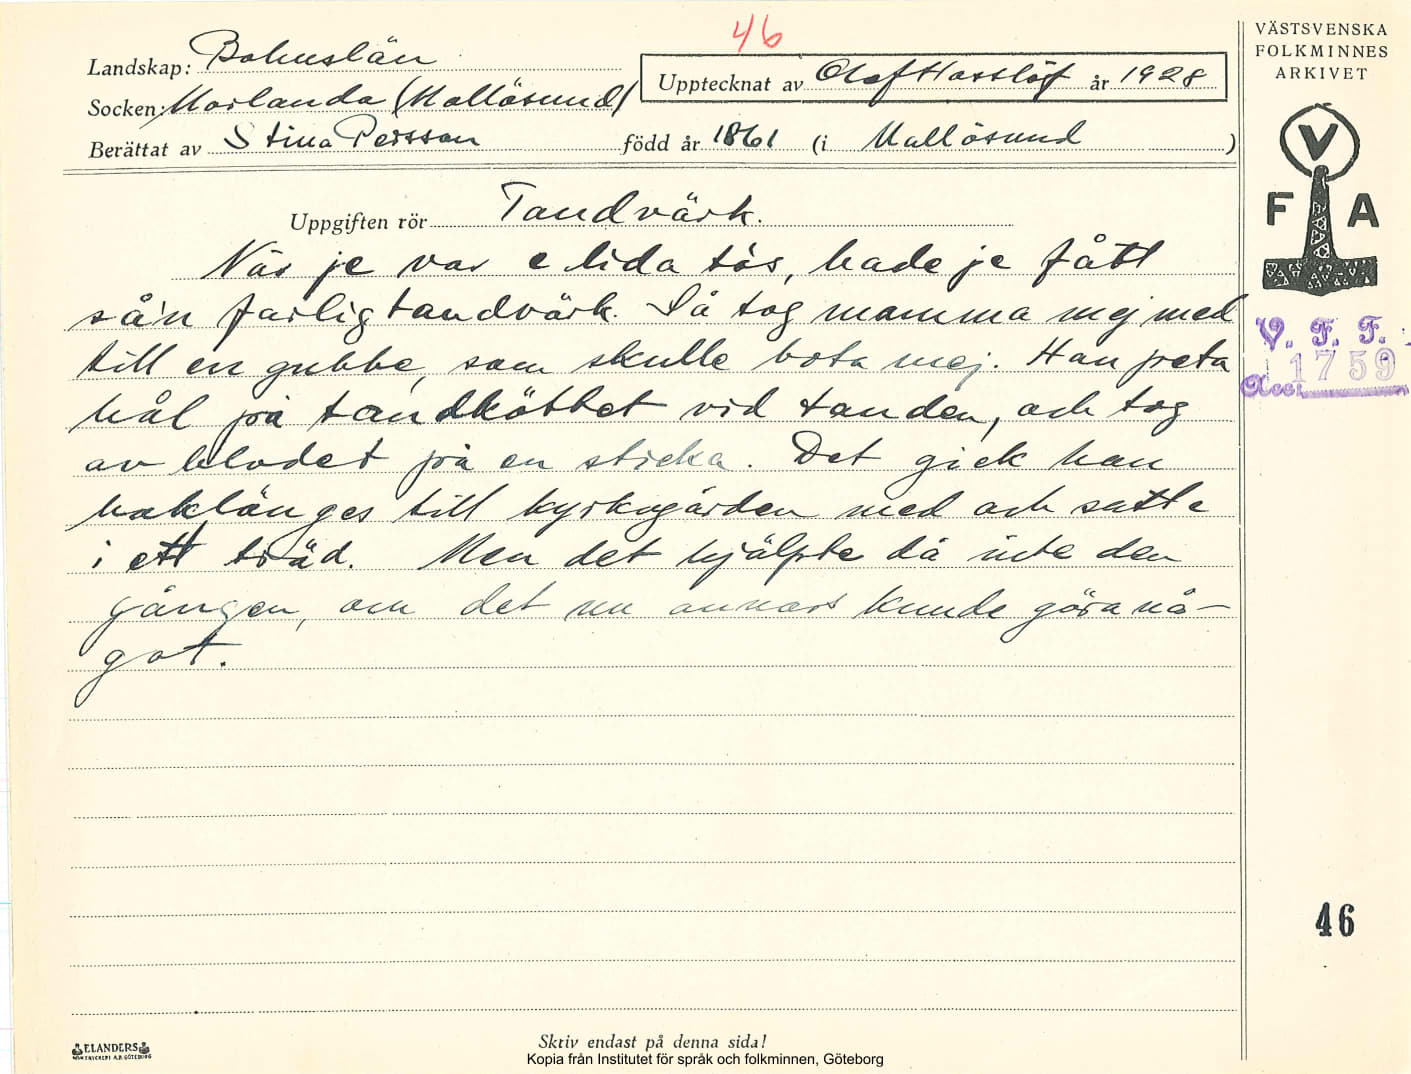 46
Landskap: Bohuslän
Upptecknat av Olof Hasslöf år 1928
Socken: Morlanda (Mollösund)
Berättat av Stina Persson född år 1861 (i Mollösund)
Uppgiften rör Tandvärk.
När je var e lida tös, hade je fått
så'n farlig tandvärk. Så tog mamma mej med
till en gubbe, som skulle bota mej. Han peta
hål på tandköttet vid tanden, och tog
av blodet på en sticka. Det gick han
baklänges till kyrkogården med och satte
i ett träd. Men det hjälpte då inte den
gången, om det nu annars kunde göra nå-
got.
VÄSTSVENSKA
FOLKMINNES
ARKIVET
V
F A
V. F. F.
Acc. 1759
46
ELANDERS
Skriv endast på denna sida!
Kopia från Institutet för språk och folkminnen, Göteborg